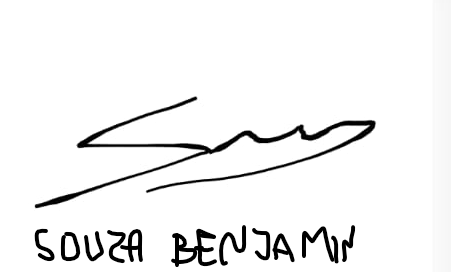 SOUZA BENJAMIN